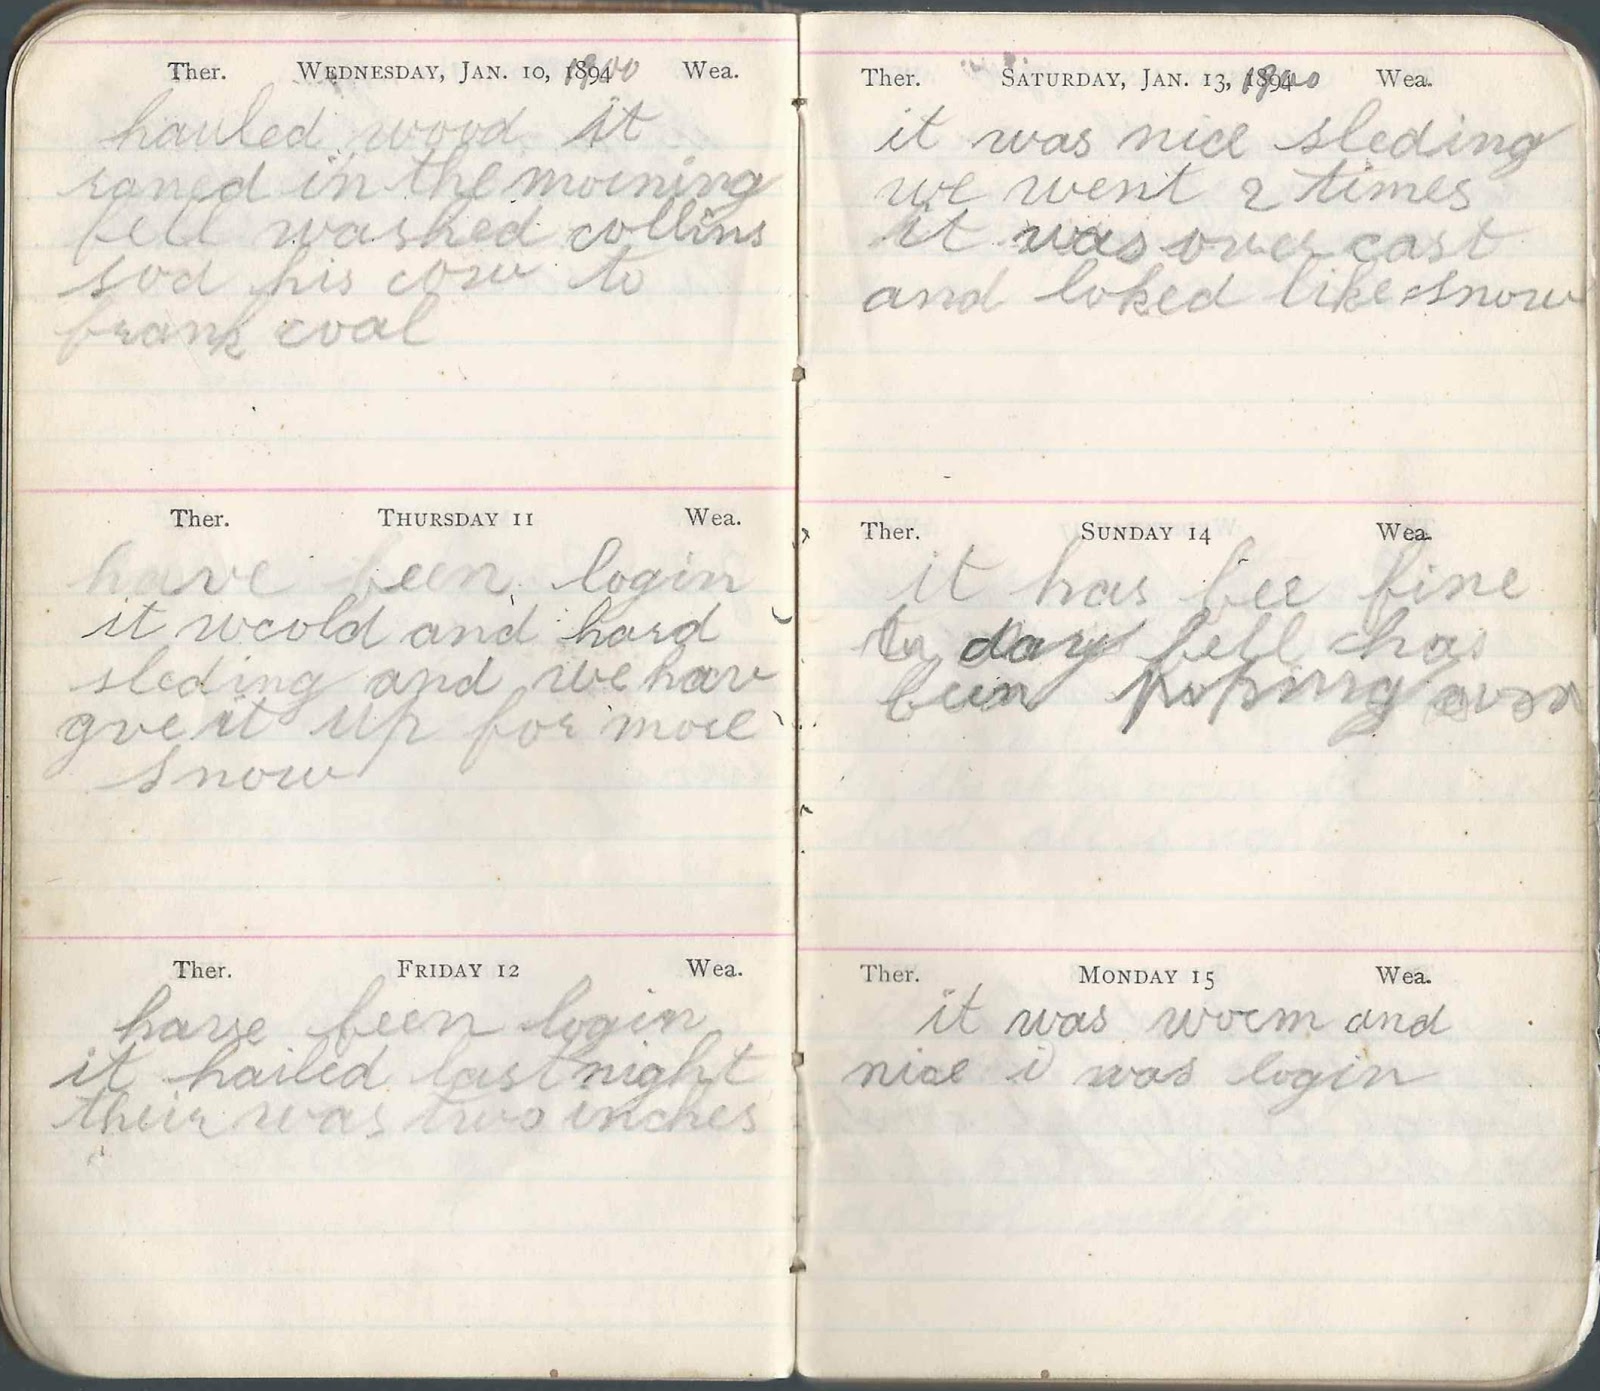 Ther. WEDNESDAY, JAN. 10, 1894 1900 Wea.
hauled wood it
raned in the morning
bell washed collins
sod his cow to
frank coal
Ther. THURSDAY 11 Wea.
have been login
it wcold and hard
sleding and we hav
gve it up for more
snow
Ther. FRIDAY 12 Wea.
have been login
it hailed last night
their was two inches
Ther. SATURDAY, JAN. 13, 1894 1900 Wea.
it was nice sleding
we went 2 times
it was over cast
and loked like snow
Ther. SUNDAY 14 Wea.
it has bee fine
to day bell has
been poping corn
Ther. MONDAY 15 Wea.
it was worm and
nice i was login